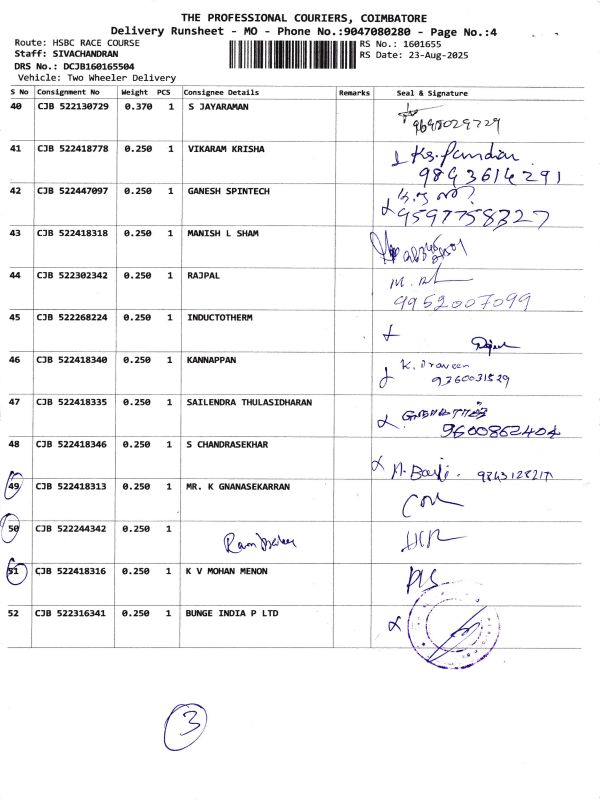 THE PROFESSIONAL COURIERS, COIMBATORE
Delivery Runsheet - MO - Phone No.:9047080280 - Page No.:4
Route: HSBC RACE COURSE
RS No.: 1601655
Staff: SIVACHANDRAN
RS Date: 23-Aug-2025
DRS No.: DCJB160165504
Vehicle: Two Wheeler Delivery
S No Consignment No Weight PCS Consignee Details Remarks Seal & Signature
40 CJB 522130729 0.370 1 S JAYARAMAN
9698029729
41 CJB 522418778 0.250 1 VIKARAM KRISHA
Ks. Pandian
9843614291
42 CJB 522447097 0.250 1 GANESH SPINTECH
9597758327
43 CJB 522418318 0.250 1 MANISH L SHAM
44 CJB 522302342 0.250 1 RAJPAL
9952007099
45 CJB 522268224 0.250 1 INDUCTOTHERM
46 CJB 522418340 0.250 1 KANNAPPAN
K. Praveen
9360031529
47 CJB 522418335 0.250 1 SAILENDRA THULASIDHARAN
9600862404
48 CJB 522418346 0.250 1 S CHANDRASEKHAR
49 CJB 522418313 0.250 1 MR. K GNANASEKARRAN
50 CJB 522244342 0.250 1
51 CJB 522418316 0.250 1 K V MOHAN MENON
52 CJB 522316341 0.250 1 BUNGE INDIA P LTD
3